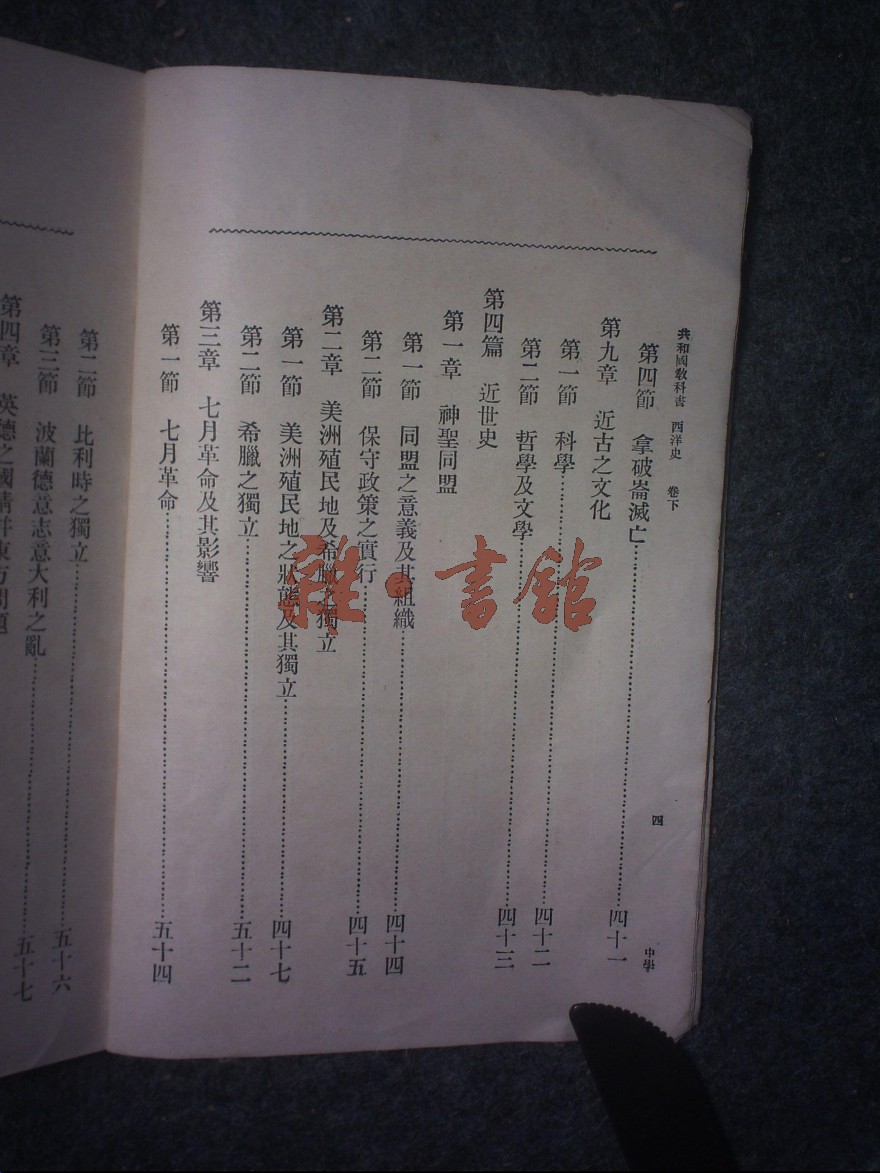 共和國教科書 西洋史 卷下
四
中學
第四節 拿破崙滅亡……四十一
第九章 近古之文化
第一節 科學……四十二
第二節 哲學及文學……四十三
第四篇 近世史
第一章 神聖同盟
第一節 同盟之意義及其組織……四十四
第二節 保守政策之實行……四十五
第二章 美洲殖民地及希臘之獨立
第一節 美洲殖民地之狀態及其獨立……四十七
第二節 希臘之獨立……五十二
第三章 七月革命及其影響
第一節 七月革命……五十四
第二節 比利時之獨立……五十六
第三節 波蘭德意志意大利之亂……五十七
第四章 英德之國情幷東方問題
雜·書館